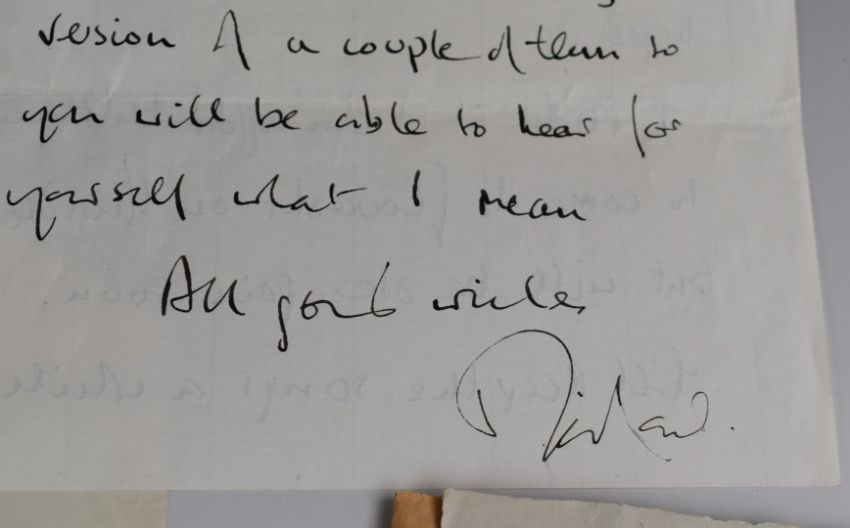 version of a couple of them so
you will be able to hear for
yourself what I mean
All good wishes